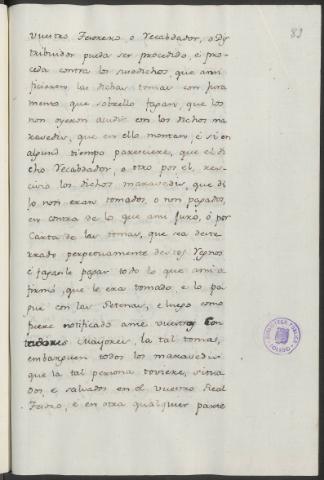 83
vuestro Tesorero o Recabdador, o Dis
tribuidor pueda ser procedido, é pro
ceda contra los susodichos, que ansi
ficieren las dichas tomas con jura
mento que sobrello fagan, que los
non oyeron audir con los dichos ma
ravedis, que en ello montan; é si en
algund tiempo pareciere, que el di
cho Recabdador, o otro por él, res
civió los dichos maravedis, que di
jo non eran tomados, o non pagados,
en contra de lo que ansi juró, ó por
Carta de las tomas, que sea deste
rrado perpetuamente destos Regnos
é faganle pagar todo lo que ansi a
firmó, que le era tomado, e lo pa
gue con las setenas, é luego como
fuere notificado ante vuestros Con
tadores Mayores, la tal toma,
embarguen todos los maravedis
que la tal persona toviere, situa
dos, é salvados en el vuestro Real
é en otra qualquier parte
BIBLIOTECA PUBLICA
TOLEDO